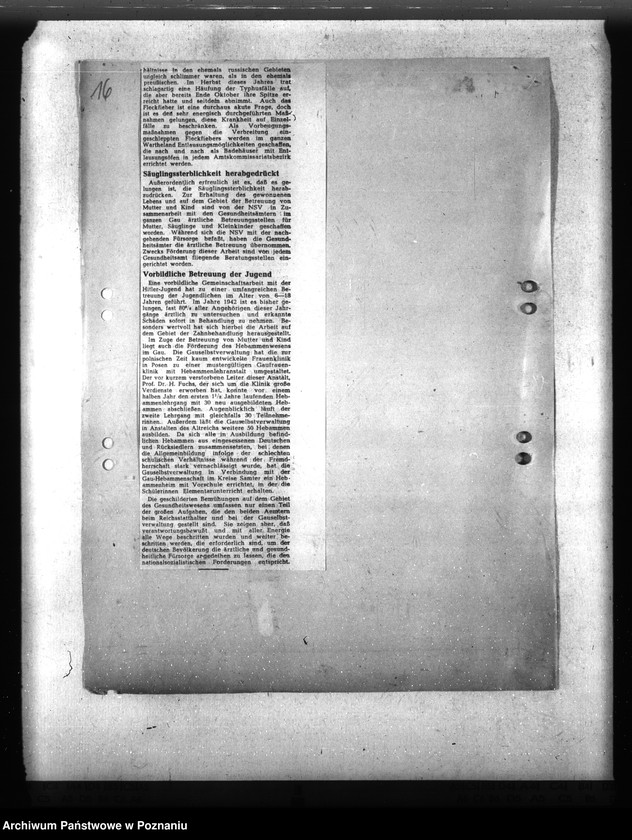 16
hältnisse in den ehemals russischen Gebieten
ungleich schlimmer waren, als in den ehemals
preußischen. Im Herbst dieses Jahres trat
schlagartig eine Häufung der Typhusfälle auf,
die aber bereits Ende Oktober ihre Spitze er-
reicht hatte und seitdem abnimmt. Auch das
Fleckfieber ist eine durchaus akute Frage, doch
ist es den sehr energisch durchgeführten Maß-
nahmen gelungen, diese Krankheit auf Einzel-
fälle zu beschränken. Als Vorbeugungs-
maßnahmen gegen die Verbreitung ein-
geschleppten Fleckfiebers werden im ganzen
Wartheland Entlausungsmöglichkeiten geschaffen,
die nach und nach als Badehäuser mit Ent-
lausungsöfen in jedem Amtskommissariatsbezirk
errichtet werden.
Säuglingssterblichkeit herabgedrückt
Außerordentlich erfreulich ist es, daß es ge-
lungen ist, die Säuglingssterblichkeit herab-
zudrücken. Zur Erhaltung des gewonnenen
Lebens und auf dem Gebiet der Betreuung von
Mutter und Kind sind von der NSV in Zu-
sammenarbeit mit den Gesundheitsämtern im
ganzen Gau ärztliche Betreuungsstellen für
Mutter, Säuglinge und Kleinkinder geschaffen
worden. Während sich die NSV mit der nach-
gehenden Fürsorge befaßt, haben die Gesund-
heitsämter die ärztliche Betreuung übernommen.
Zwecks Förderung dieser Arbeit sind von jedem
Gesundheitsamt fliegende Beratungsstellen ein-
gerichtet worden.
Vorbildliche Betreuung der Jugend
Eine vorbildliche Gemeinschaftsarbeit mit der
Hitler-Jugend hat zu einer umfangreichen Be-
treuung der Jugendlichen im Alter von 6—18
Jahren geführt. Im Jahre 1942 ist es bisher ge-
lungen, fast 80% aller Angehörigen dieser Jahr-
gänge ärztlich zu untersuchen und erkannte
Schäden sofort in Behandlung zu nehmen. Be-
sonders wertvoll hat sich hierbei die Arbeit auf
dem Gebiet der Zahnbehandlung herausgestellt.
Im Zuge der Betreuung von Mutter und Kind
liegt auch die Förderung des Hebammenwesens
im Gau. Die Gauselbstverwaltung hat die zur
polnischen Zeit kaum entwickelte Frauenklinik
in Posen zu einer mustergültigen Gaufrauen-
klinik mit Hebammenlehranstalt umgestaltet.
Der vor kurzem verstorbene Leiter dieser Anstalt,
Prof. Dr. H. Fuchs, der sich um die Klinik große
Verdienste erworben hat, konnte vor einem
halben Jahr den ersten 1½ Jahre laufenden Heb-
ammenlehrgang mit 30 neu ausgebildeten Heb-
ammen abschließen. Augenblicklich läuft der
zweite Lehrgang mit gleichfalls 30 Teilnehme-
rinnen. Außerdem läßt die Gauselbstverwaltung
in Anstalten des Altreichs weitere 50 Hebammen
ausbilden. Da sich alle in Ausbildung befind-
lichen Hebammen aus eingesessenen Deutschen
und Rücksiedlern zusammensetzten, bei denen
die Allgemeinbildung infolge der schlechten
schulischen Verhältnisse während der Fremd-
herrschaft stark vernachlässigt wurde, hat die
Gauselbstverwaltung in Verbindung mit der
Gau-Hebammenschaft im Kreise Samter ein Heb-
ammenheim mit Vorschule errichtet, in der die
Schülerinnen Elementarunterricht erhalten.
Die geschilderten Bemühungen auf dem Gebiet
des Gesundheitswesens umfassen nur einen Teil
der großen Aufgaben, die den beiden Ämtern
beim Reichsstatthalter und bei der Gauselbst-
verwaltung gestellt sind. Sie zeigen aber, daß
verantwortungsbewußt und mit aller Energie
alle Wege beschritten wurden und weiter be-
schritten werden, die erforderlich sind, um der
deutschen Bevölkerung die ärztliche und gesund-
heitliche Fürsorge angedeihen zu lassen, die den
nationalsozialistischen Forderungen entspricht.
Archiwum Państwowe w Poznaniu